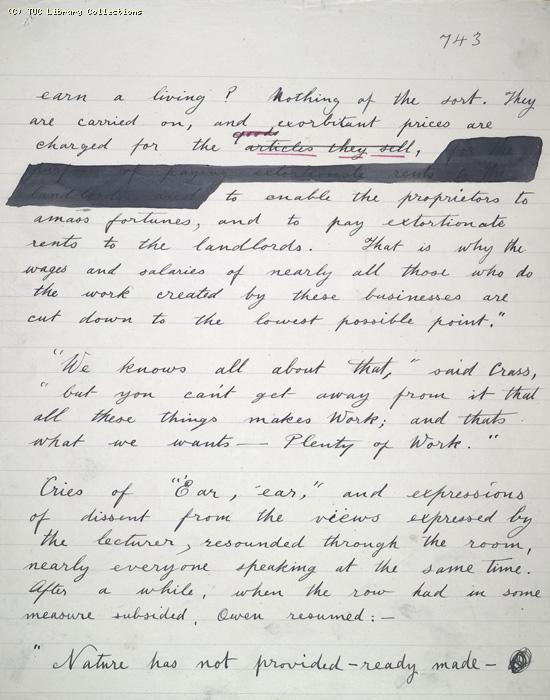 (C) TUC Library Collections
743
earn a living? Nothing of the sort. They
are carried on, and exorbitant prices are
goods
charged for the articles they sell, for the
purpose of paying extortionate rents to the
landlords and to enable the proprietors to
amass fortunes, and to pay extortionate
rents to the landlords. That is why the
wages and salaries of nearly all those who do
the work created by these businesses are
cut down to the lowest possible point."
"We knows all about that," said Crass,
"but you can't get away from it that
all these things makes Work; and thats
what we wants — Plenty of Work."
Cries of "'Ear, 'ear," and expressions
of dissent from the views expressed by
the lecturer, resounded through the room,
nearly everyone speaking at the same time.
After a while, when the row had in some
measure subsided, Owen resumed:—
"Nature has not provided—ready made—